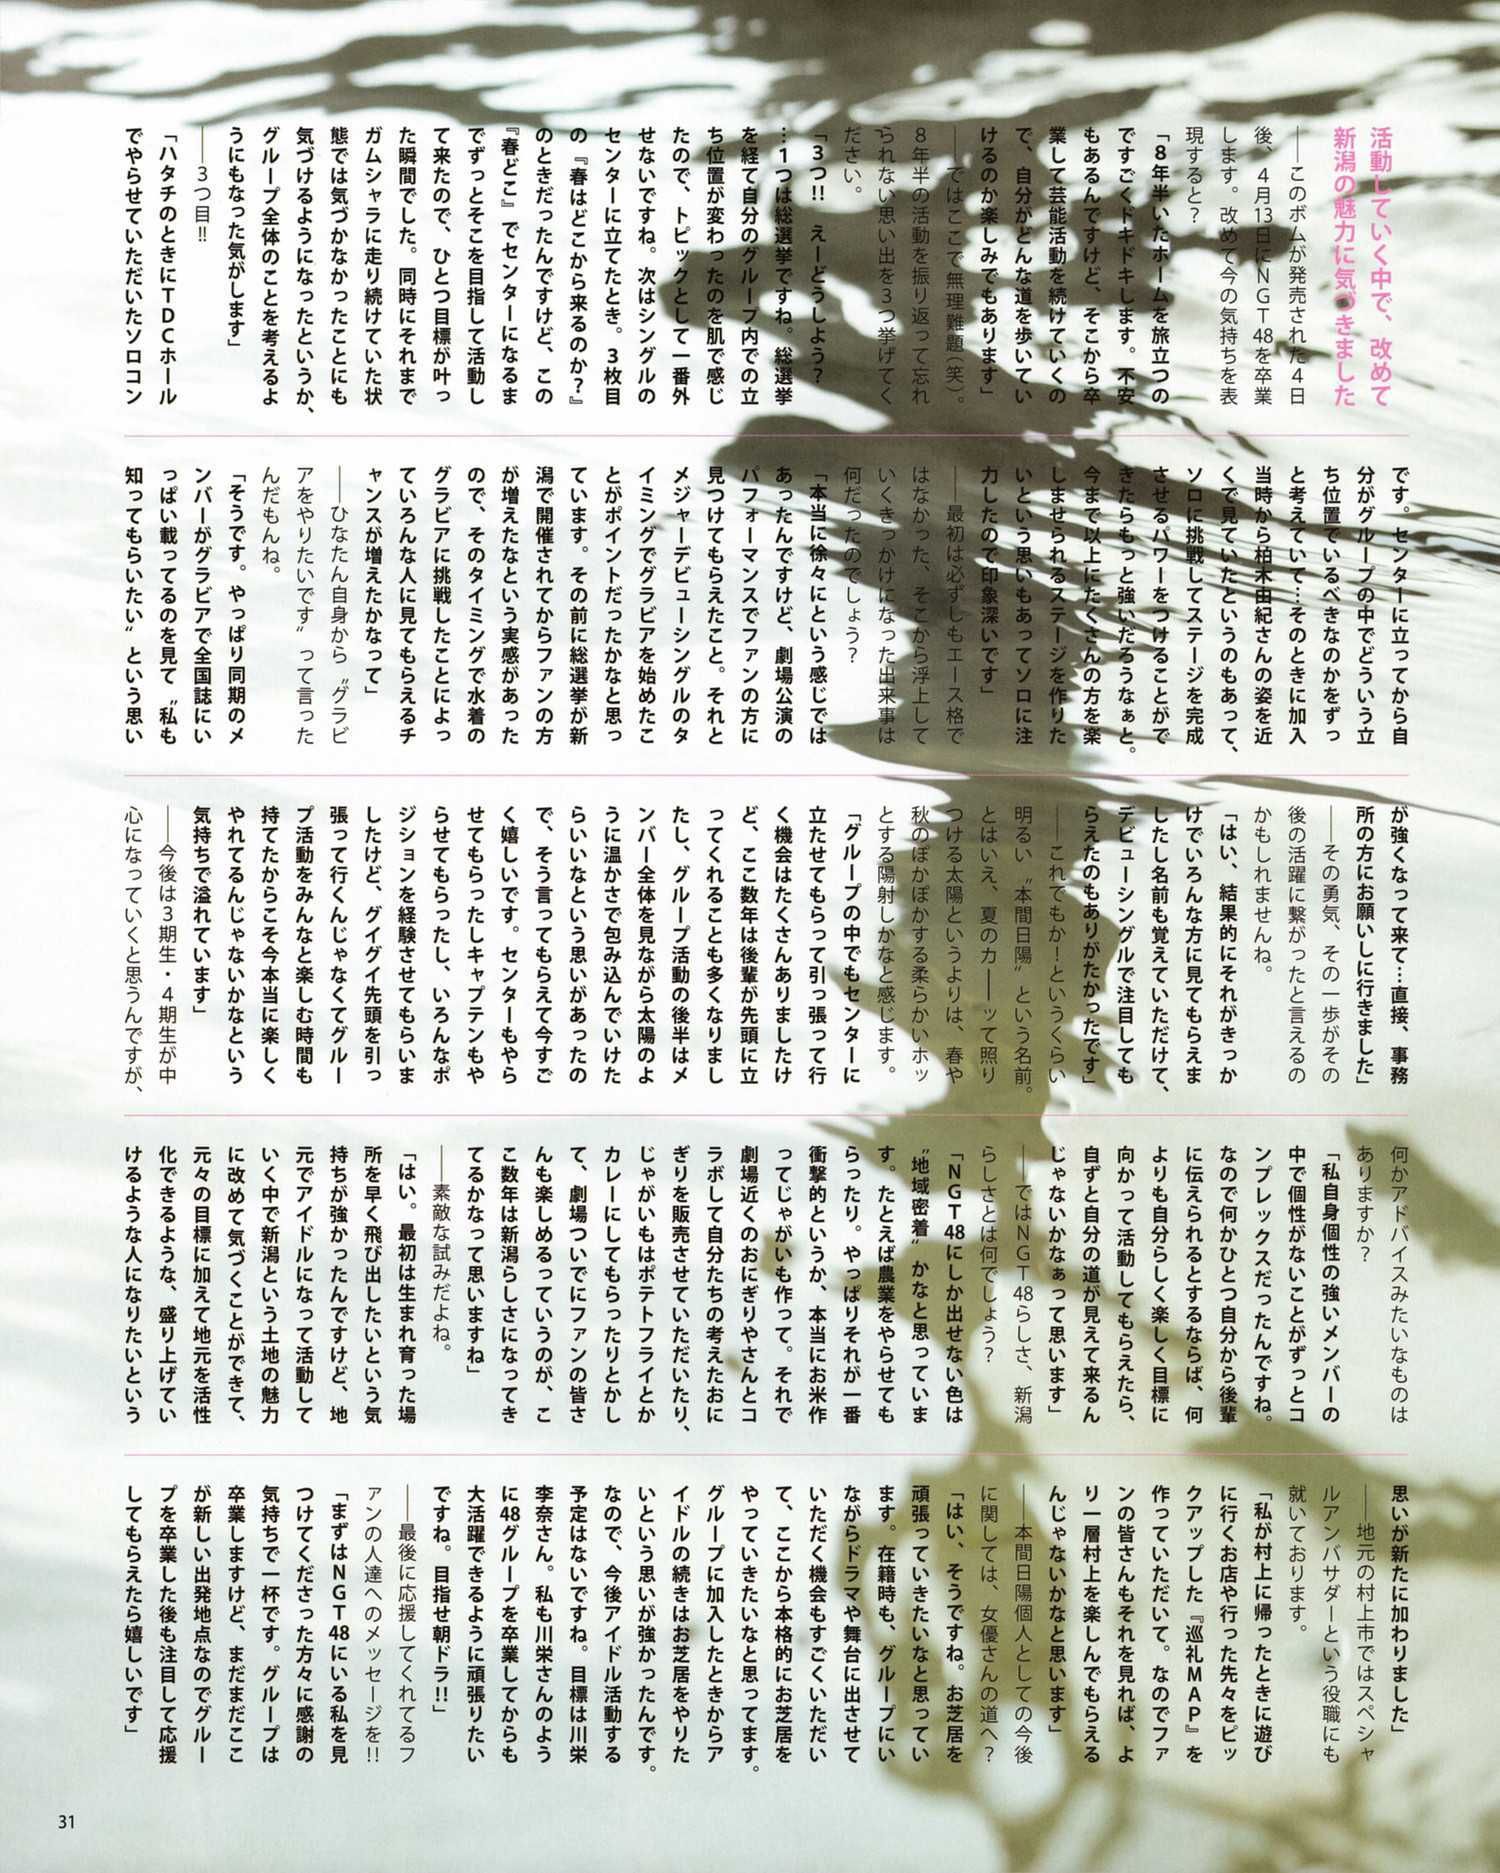 活動していく中で、改めて
新潟の魅力に気づきました
――このボムが発売された4日
後、4月13日にNGT48を卒業
します。改めて今の気持ちを表
現すると?
「8年半いたホームを旅立つの
ですごくドキドキします。不安
もあるんですけど、そこから卒
業して芸能活動を続けていくの
で、自分がどんな道を歩いてい
けるのか楽しみでもあります」
――ではここで無理難題(笑)。
8年半の活動を振り返って忘れ
られない思い出を3つ挙げてく
ださい。
「3つ!! えーどうしよう?
…1つは総選挙ですね。総選挙
を経て自分のグループ内での立
ち位置が変わったのを肌で感じ
たので、トピックとして一番外
せないですね。次はシングルの
センターに立てたとき。3枚目
の『春はどこから来るのか?』
のときだったんですけど、この
『春どこ』でセンターになるま
でずっとそこを目指して活動し
て来たので、ひとつ目標が叶っ
た瞬間でした。同時にそれまで
ガムシャラに走り続けていた状
態では気づかなかったことにも
気づけるようになったというか、
グループ全体のことを考えるよ
うにもなった気がします」
――3つ目!!
「ハタチのときにTDCホール
でやらせていただいたソロコン
です。センターに立ってから自
分がグループの中でどういう立
ち位置でいるべきなのかをずっ
と考えていて…そのときに加入
当時から柏木由紀さんの姿を近
くで見ていたというのもあって、
ソロに挑戦してステージを完成
させるパワーをつけることがで
きたらもっと強いだろうなぁと。
今まで以上にたくさんの方を楽
しませられるステージを作りた
いという思いもあってソロに注
力したので印象深いです」
――最初は必ずしもエース格で
はなかった、そこから浮上して
いくきっかけになった出来事は
何だったのでしょう?
「本当に徐々にという感じでは
あったんですけど、劇場公演の
パフォーマンスでファンの方に
見つけてもらえたこと。それと
メジャーデビューシングルのタ
イミングでグラビアを始めたこ
とがポイントだったかなと思っ
ています。その前に総選挙が新
潟で開催されてからファンの方
が増えたなという実感があった
ので、そのタイミングで水着の
グラビアに挑戦したことによっ
ていろんな人に見てもらえるチ
ャンスが増えたかなって」
――ひなたん自身から〝グラビ
アをやりたいです〟って言った
んだもんね。
「そうです。やっぱり同期のメ
ンバーがグラビアで全国誌にい
っぱい載ってるのを見て〝私も
知ってもらいたい〟という思い
が強くなって来て…直接、事務
所の方にお願いしに行きました」
――その勇気、その一歩がその
後の活躍に繋がったと言えるの
かもしれませんね。
「はい、結果的にそれがきっか
けでいろんな方に見てもらえま
したし名前も覚えていただけて、
デビューシングルで注目しても
らえたのもありがたかったです」
――これでもか!というくらい
明るい〝本間日陽〟という名前。
とはいえ、夏のカ――ッて照り
つける太陽というよりは、春や
秋のぽかぽかする柔らかいホッ
とする陽射しかなと感じます。
「グループの中でもセンターに
立たせてもらって引っ張って行
く機会はたくさんありましたけ
ど、ここ数年は後輩が先頭に立
ってくれることも多くなりまし
たし、グループ活動の後半はメ
ンバー全体を見ながら太陽のよ
うに温かさで包み込んでいけた
らいいなという思いがあったの
で、そう言ってもらえて今すご
く嬉しいです。センターもやら
せてもらったしキャプテンもや
らせてもらったし、いろんなポ
ジションを経験させてもらいま
したけど、グイグイ先頭を引っ
張って行くんじゃなくてグルー
プ活動をみんなと楽しむ時間も
持てたからこそ今本当に楽しく
やれてるんじゃないかなという
気持ちで溢れています」
――今後は3期生・4期生が中
心になっていくと思うんですが、
何かアドバイスみたいなものは
ありますか?
「私自身個性の強いメンバーの
中で個性がないことがずっとコ
ンプレックスだったんですね。
なので何かひとつ自分から後輩
に伝えられるとするならば、何
よりも自分らしく楽しく目標に
向かって活動してもらえたら、
自ずと自分の道が見えて来るん
じゃないかなぁって思います」
――ではNGT48らしさ、新潟
らしさとは何でしょう?
「NGT48にしか出せない色は
〝地域密着〟かなと思っていま
す。たとえば農業をやらせても
らったり。やっぱりそれが一番
衝撃的というか、本当にお米作
ってじゃがいも作って。それで
劇場近くのおにぎりやさんとコ
ラボして自分たちの考えたおに
ぎりを販売させていただいたり、
じゃがいもはポテトフライとか
カレーにしてもらったりとかし
て、劇場ついでにファンの皆さ
んも楽しめるっていうのが、こ
こ数年は新潟らしさになってき
てるかなって思いますね」
――素敵な試みだよね。
「はい。最初は生まれ育った場
所を早く飛び出したいという気
持ちが強かったんですけど、地
元でアイドルになって活動して
いく中で新潟という土地の魅力
に改めて気づくことができて、
元々の目標に加えて地元を活性
化できるような、盛り上げてい
けるような人になりたいという
思いが新たに加わりました」
――地元の村上市ではスペシャ
ルアンバサダーという役職にも
就いております。
「私が村上に帰ったときに遊び
に行くお店や行った先々をピッ
クアップした『巡礼MAP』を
作っていただいて。なのでファ
ンの皆さんもそれを見れば、よ
り一層村上を楽しんでもらえる
んじゃないかなと思います」
――本間日陽個人としての今後
に関しては、女優さんの道へ?
「はい、そうですね。お芝居を
頑張っていきたいなと思ってい
ます。在籍時も、グループにい
ながらドラマや舞台に出させて
いただく機会もすごくいただい
て、ここから本格的にお芝居を
やっていきたいなと思ってます。
グループに加入したときからア
イドルの続きはお芝居をやりた
いという思いが強かったんです。
なので、今後アイドル活動する
予定はないですね。目標は川栄
李奈さん。私も川栄さんのよう
に48グループを卒業してからも
大活躍できるように頑張りたい
ですね。目指せ朝ドラ!!」
――最後に応援してくれてるフ
ァンの人達へのメッセージを!!
「まずはNGT48にいる私を見
つけてくださった方々に感謝の
気持ちで一杯です。グループは
卒業しますけど、まだまだここ
が新しい出発地点なのでグルー
プを卒業した後も注目して応援
してもらえたら嬉しいです」
31